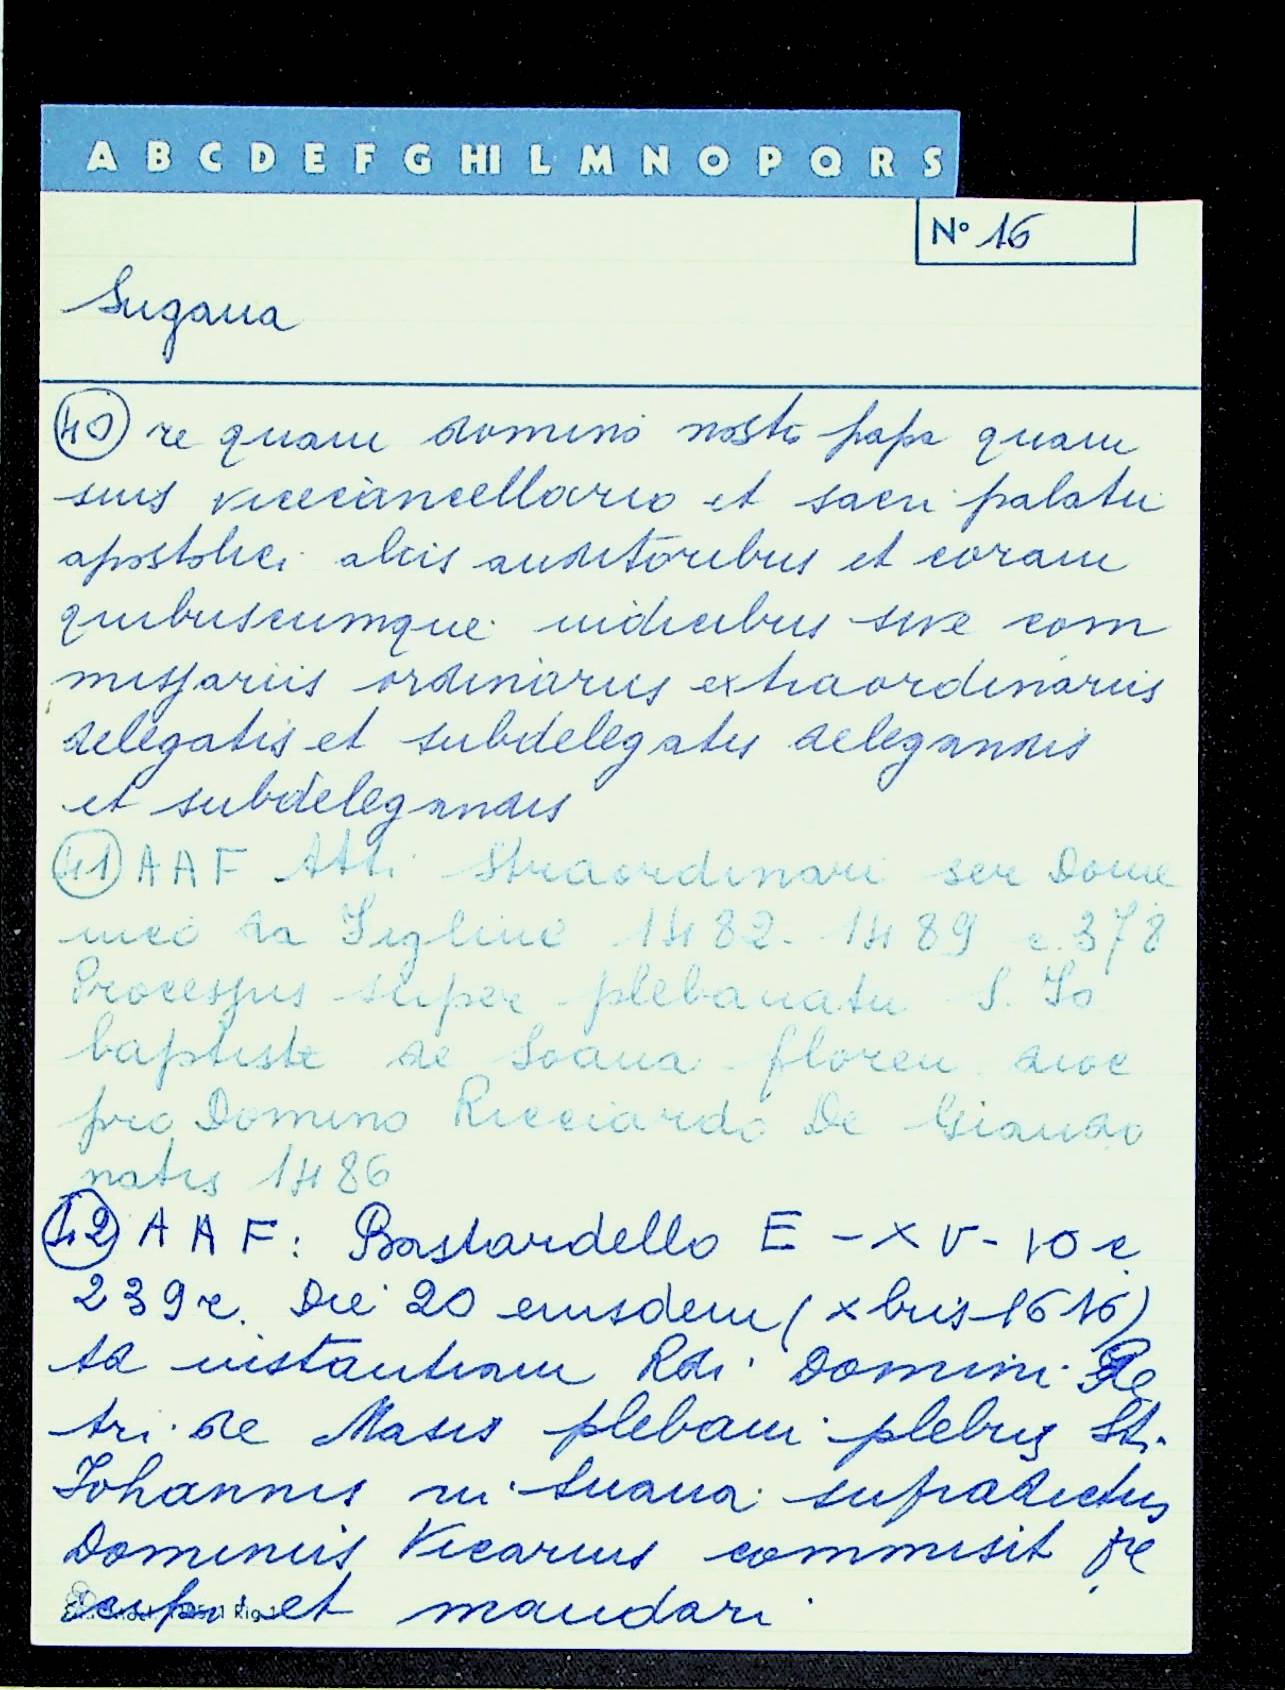 A B C D E F G HI L M N O P Q R S
N° 16
Sugana
40 re quam domino nostro papa quam
suis vicecancellario et sacri palatii
apostolici aliis auditoribus et coram
quibuscumque iudicibus sive com
missariis ordinariis extraordinariis
delegatis et subdelegatis delegandis
et subdelegandis
41 AAF Atti Straordinari ser Dome
nico da Figline 1482-1489 c.378
Processus super plebanatu S. Jo
baptiste de Soana floren dioc
pro Domino Ricciardo De Giando
natis 1486
42 AAF: Bastardello E-XV-10 c
239r. Die 20 eiusdem (xbris 1616)
Ad instantiam Rdi Domini Pe
tri de Masis plebani plebis Sti
Johannis in Suana supradictus
Dominus Vicarius commisit pre
cipi et mandari